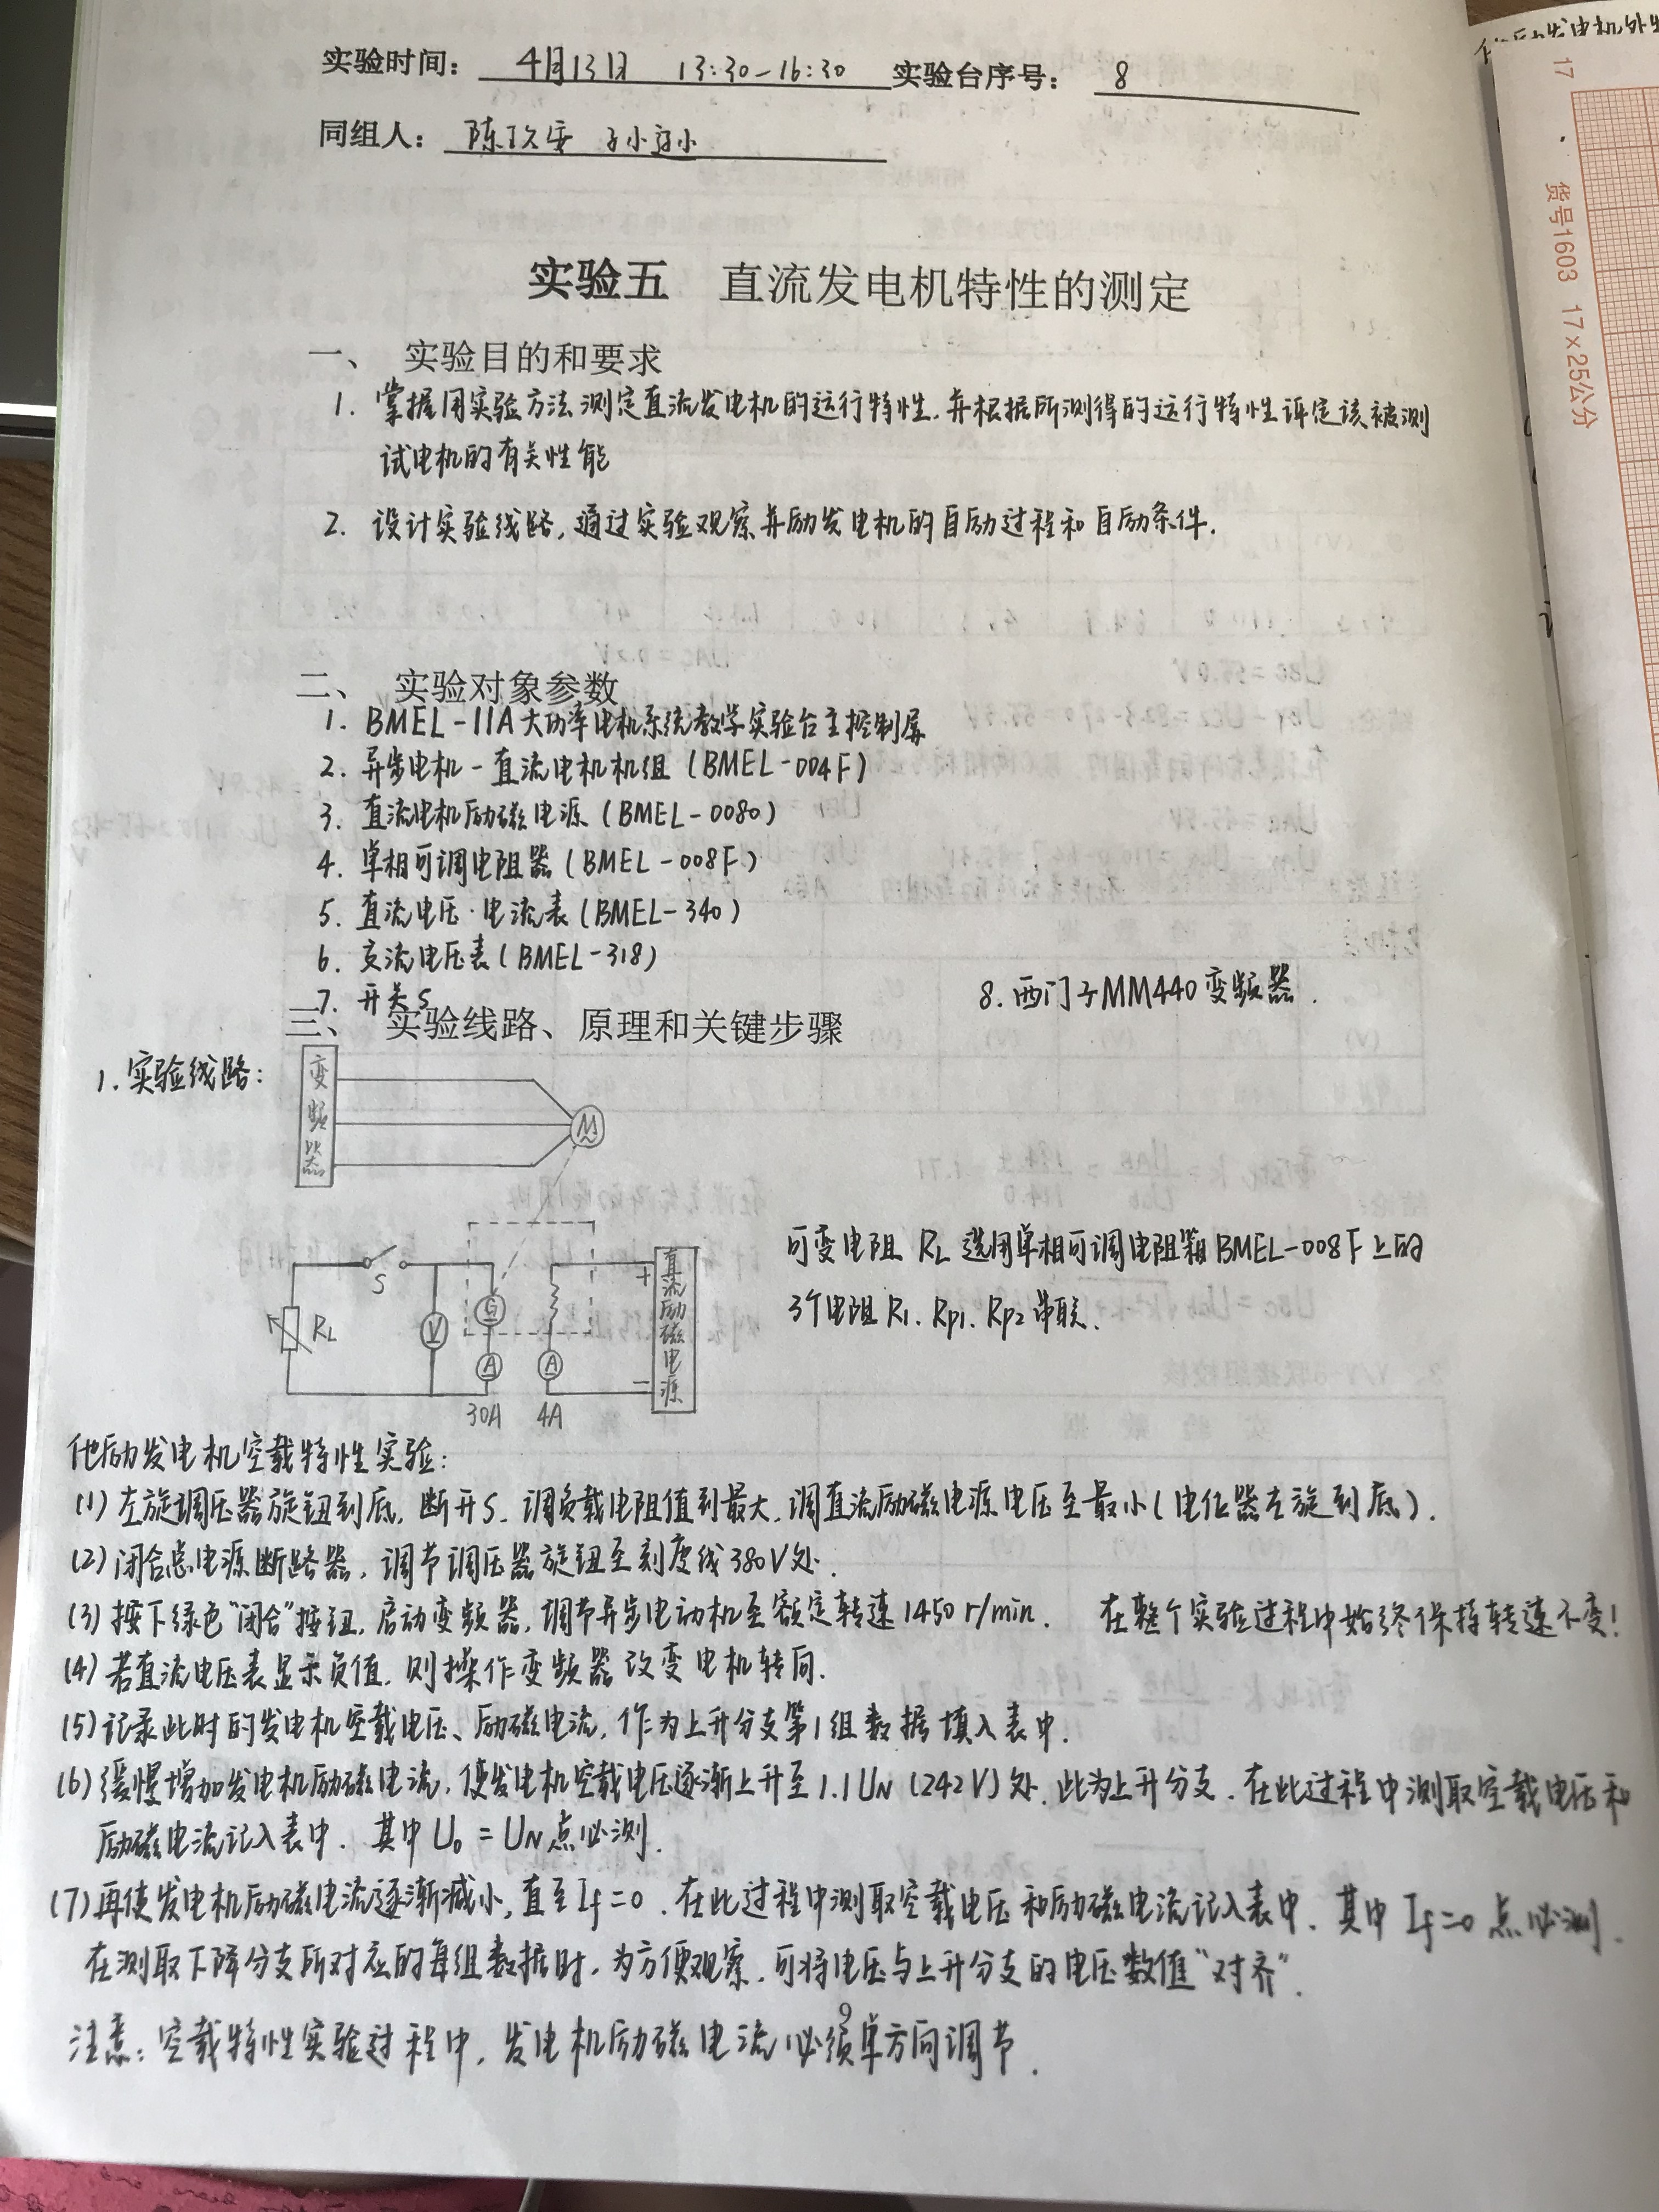 实验时间： 4月13日 13:30-16:30 实验台序号： 8
同组人： 陈
实验五 直流发电机特性的测定
一、 实验目的和要求
1. 掌握用实验方法测定直流发电机的运行特性，并根据所测得的运行特性评定该被测
试电机的有关性能
2. 设计实验线路，通过实验观察并励发电机的自励过程和自励条件.
二、 实验对象参数
1. BMEL-11A大功率电机系统教学实验台主控制屏
2. 异步电机-直流电机机组（BMEL-004F）
3. 直流电机励磁电源（BMEL-0080）
4. 单相可调电阻器（BMEL-008F）
5. 直流电压·电流表（BMEL-340）
6. 交流电压表（BMEL-318）
7. 开关S
8. 西门子MM440变频器.
三、 实验线路、原理和关键步骤
1. 实验线路：
变频器
M
S
RL
V
G
A
A
30A 4A
+
直流励磁电源
−
可变电阻 RL 选用单相可调电阻箱BMEL-008F上的
3个电阻R1、Rp1、Rp2串联.
他励发电机空载特性实验：
(1) 左旋调压器旋钮到底，断开S、调负载电阻值到最大，调直流励磁电源电压至最小（电位器左旋到底）.
(2) 闭合总电源断路器，调节调压器旋钮至刻度线380V处.
(3) 按下绿色“闭合”按钮，启动变频器，调节异步电动机至额定转速1450r/min. 在整个实验过程中始终保持转速不变！
(4) 若直流电压表显示负值，则操作变频器改变电机转向.
(5) 记录此时的发电机空载电压、励磁电流，作为上升分支第1组数据填入表中.
(6) 缓慢增加发电机励磁电流，使发电机空载电压逐渐上升至1.1UN（242V）处，此为上升分支. 在此过程中测取空载电压和
励磁电流记入表中. 其中U0=UN点必测.
(7) 再使发电机励磁电流逐渐减小，直至If=0. 在此过程中测取空载电压和励磁电流记入表中. 其中If=0点必测.
在测取下降分支所对应的每组数据时，为方便观察，可将电压与上升分支的电压数值“对齐”.
9
注意：空载特性实验过程中，发电机励磁电流必须单方向调节.
17
货号1603 17×25公分